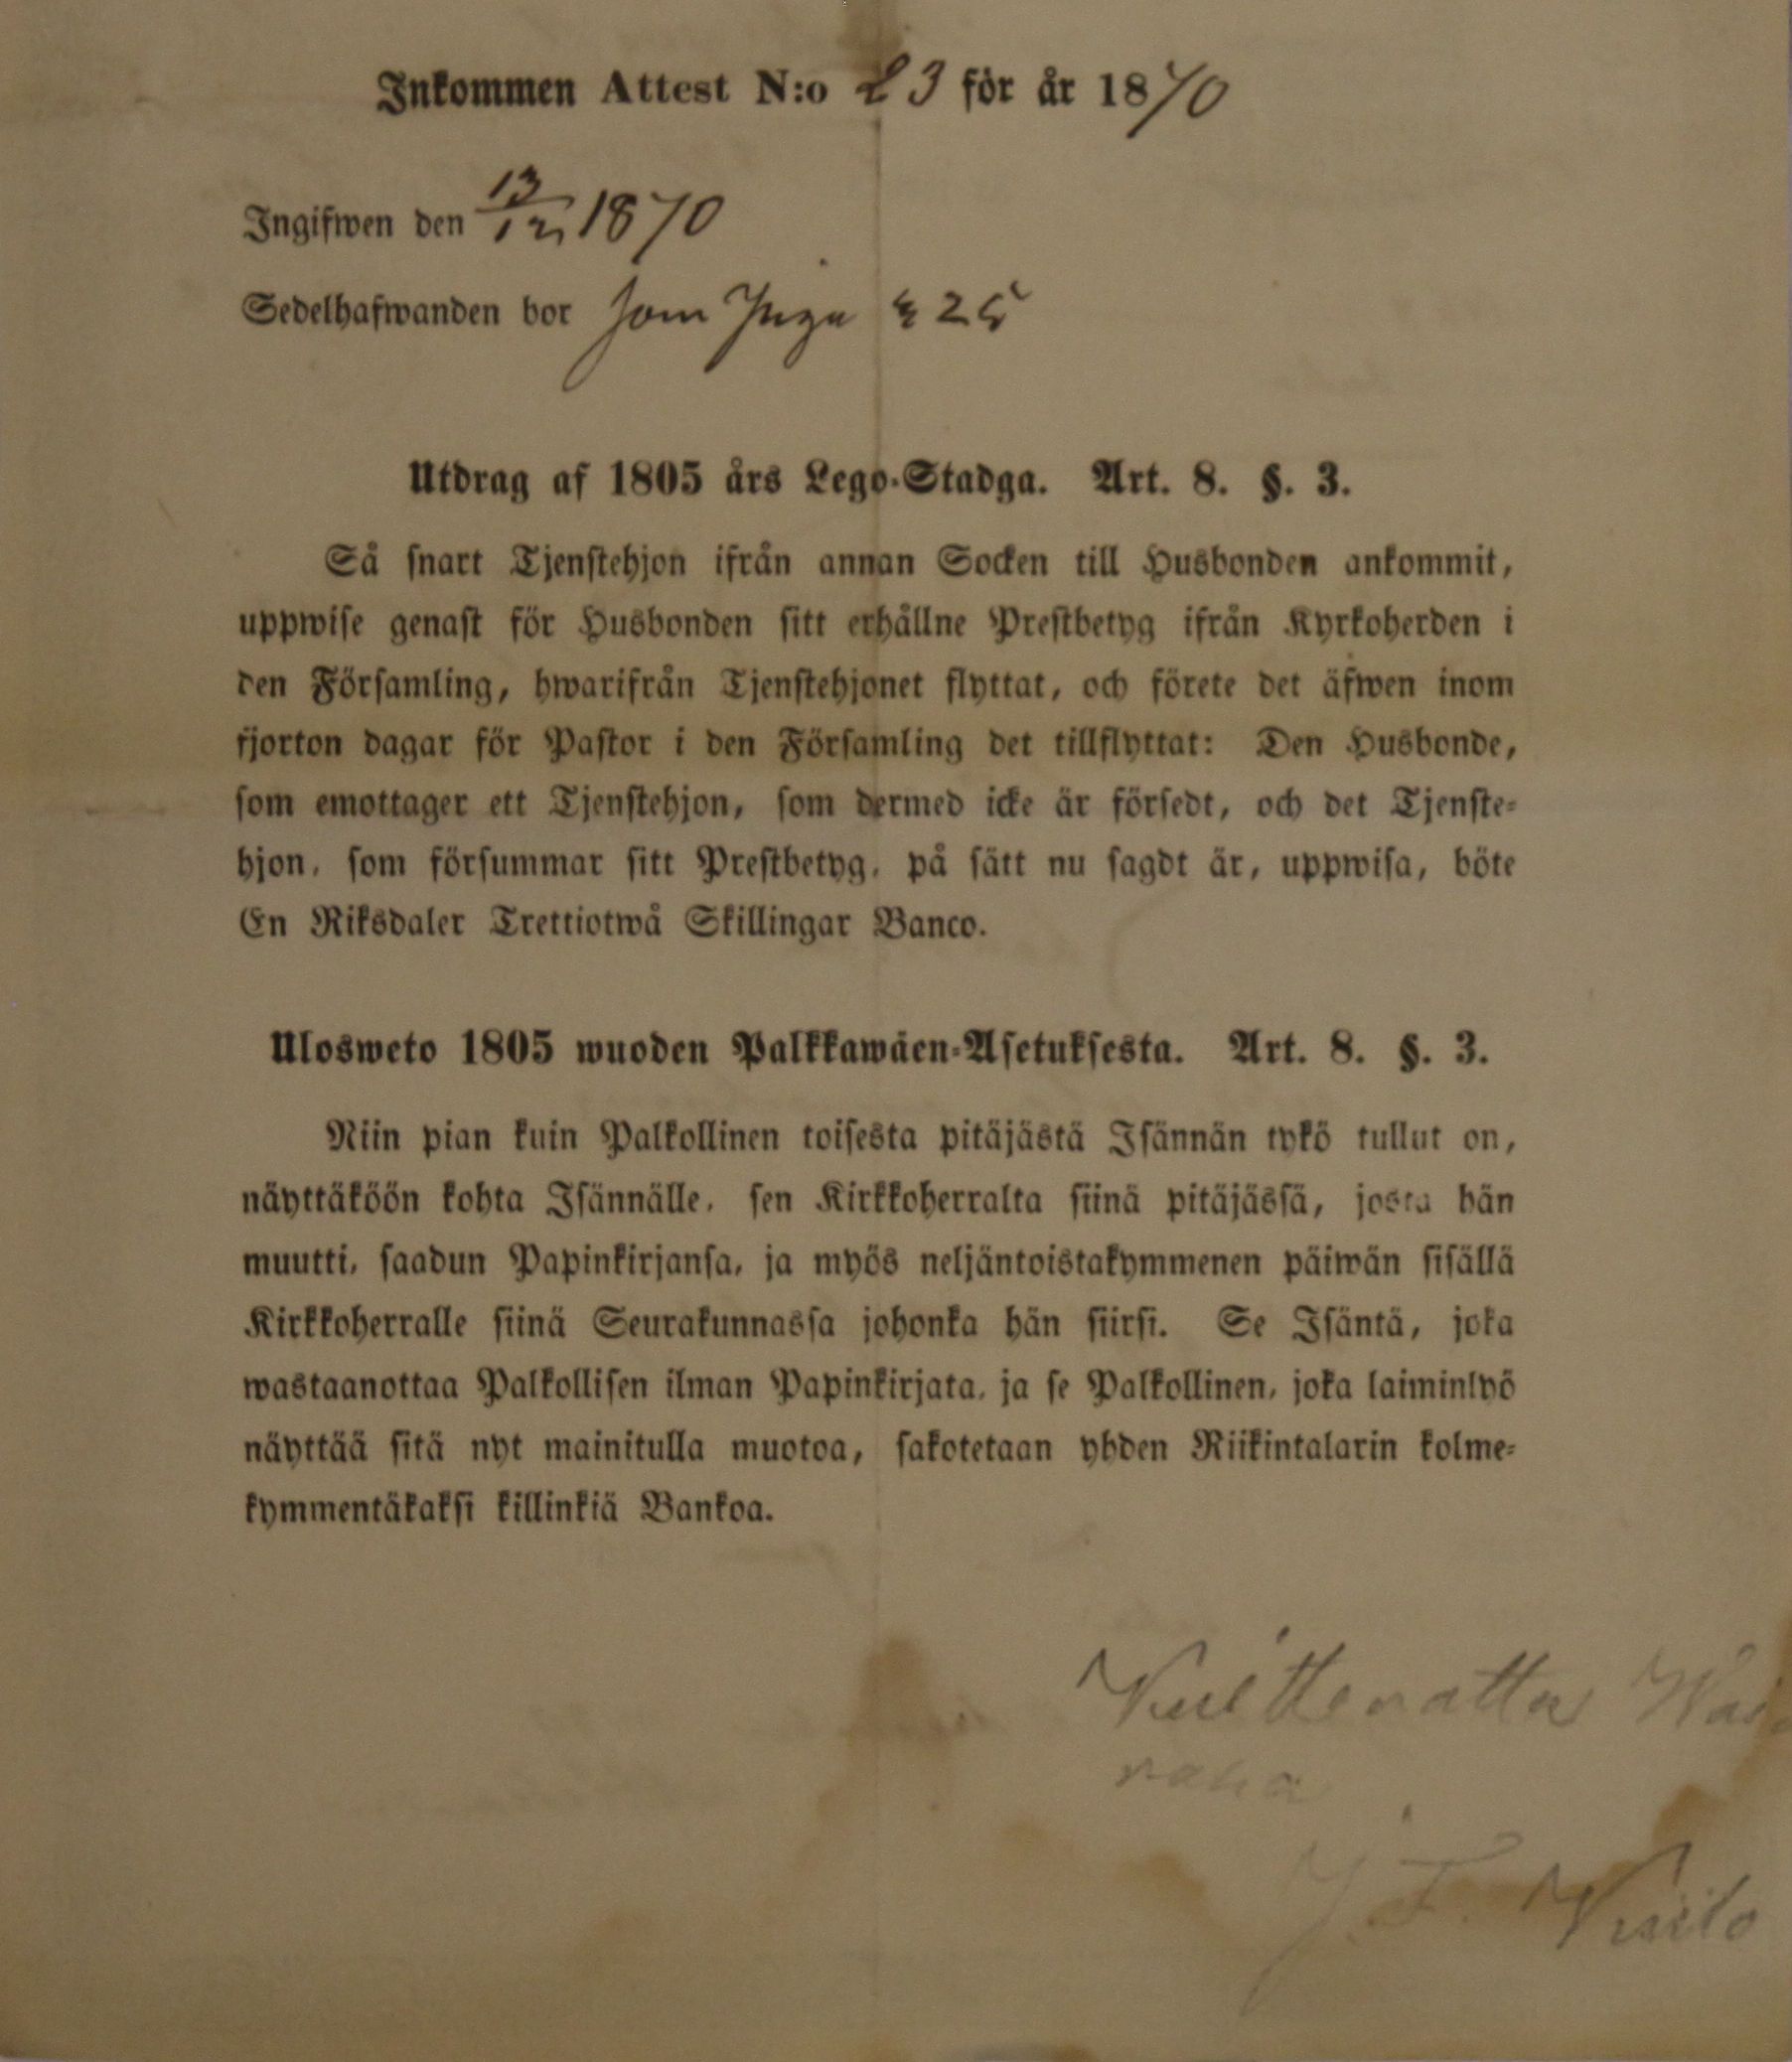 Inkommen Attest N:o 23 för år 1870
Ingifwen den 13/12 1870
Sedelhafwanden bor som Piga 25
Utdrag af 1805 års Lego-Stadga. Art. 8. §. 3.
Så snart Tjenstehjon ifrån annan Socken till Husbonden ankommit,
uppwise genast för Husbonden sitt erhållne Prestbetyg ifrån Kyrkoherden i
den Församling, hwarifrån Tjenstehjonet flyttat, och förete det äfwen inom
fjorton dagar för Pastor i den Församling det tillflyttat: Den Husbonde,
som emottager ett Tjenstehjon, som dermed icke är försedt, och det Tjenste-
hjon, som försummar sitt Prestbetyg, på sätt nu sagdt är, uppwisa, böte
En Riksdaler Trettiotwå Skillingar Banco.
Ulosweto 1805 wuoden Palkkawäen-Asetuksesta. Art. 8. §. 3.
Niin pian kuin Palkollinen toisesta pitäjästä Isännän tykö tullut on,
näyttäköön kohta Isännälle, sen Kirkkoherralta siinä pitäjässä, josta hän
muutti, saadun Papinkirjansa, ja myös neljäntoistakymmenen päiwän sisällä
Kirkkoherralle siinä Seurakunnassa johonka hän siirsi. Se Isäntä, joka
wastaanottaa Palkollisen ilman Papinkirjata, ja se Palkollinen, joka laiminlyö
näyttää sitä nyt mainitulla muotoa, sakotetaan yhden Riikintalarin kolme-
kymmentäkaksi killinkiä Bankoa.
raha